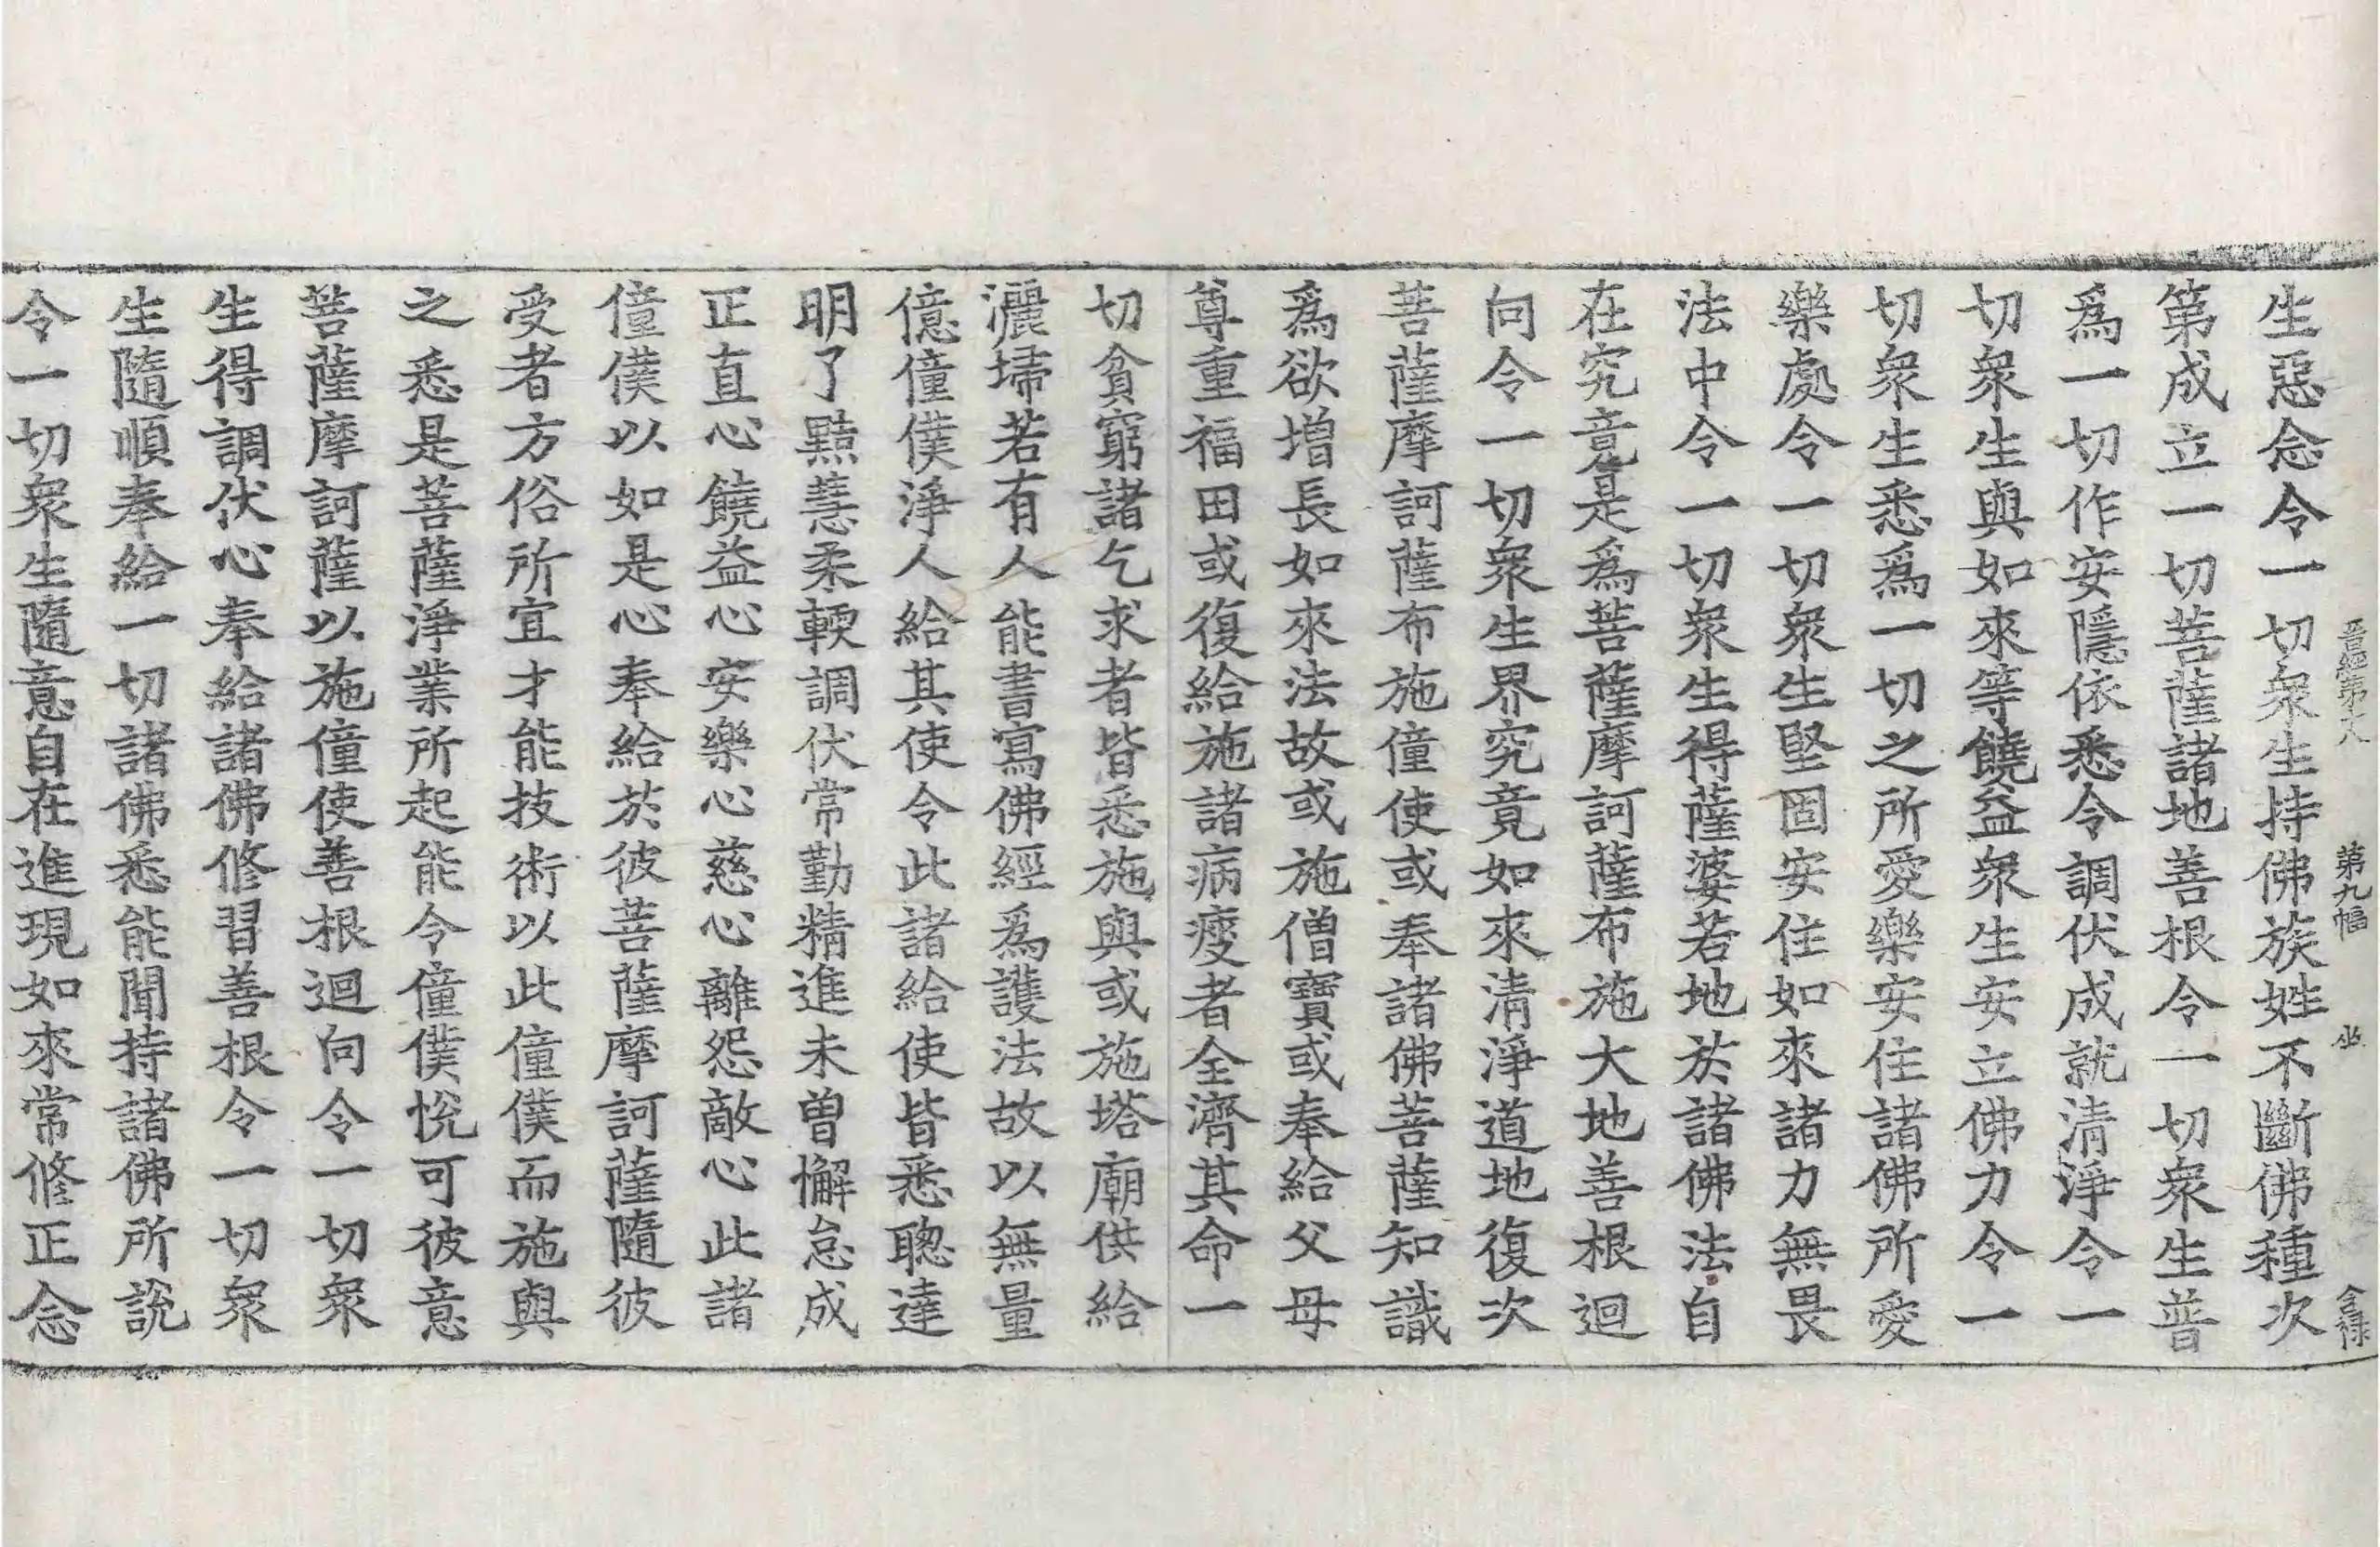 晋經第十八　第九幅　坐　合祿
生惡念令一切衆生持佛族姓不斷佛種次
第成立一切菩薩諸地善根令一切衆生普
爲一切作安隱依悉令調伏成就清淨令一
切衆生與如來等饒益衆生安立佛力令一
切衆生悉爲一切之所愛樂安住諸佛所愛
樂處令一切衆生堅固安住如來諸力無畏
法中令一切衆生得薩婆若地於諸佛法自
在究竟是爲菩薩摩訶薩布施大地善根迴
向令一切衆生界究竟如來清淨道地復次
菩薩摩訶薩布施僮使或奉諸佛菩薩知識
爲欲增長如來法故或施僧寶或奉給父母
尊重福田或復給施諸病瘦者全濟其命一
切貧窮諸乞求者皆悉施與或施塔廟供給
灑埽若有人能書寫佛經爲護法故以無量
億僮僕淨人給其使令此諸給使皆悉聰達
明了黠慧柔輭調伏常勤精進未曽懈怠成
正直心饒益心安樂心慈心離怨敵心此諸
僮僕以如是心奉給於彼菩薩摩訶薩隨彼
受者方俗所宜才能技術以此僮僕而施與
之悉是菩薩淨業所起能令僮僕悅可彼意
菩薩摩訶薩以施僮使善根迴向令一切衆
生得調伏心奉給諸佛修習善根令一切衆
生隨順奉給一切諸佛悉能聞持諸佛所說
令一切衆生隨意自在進現如來常修正念